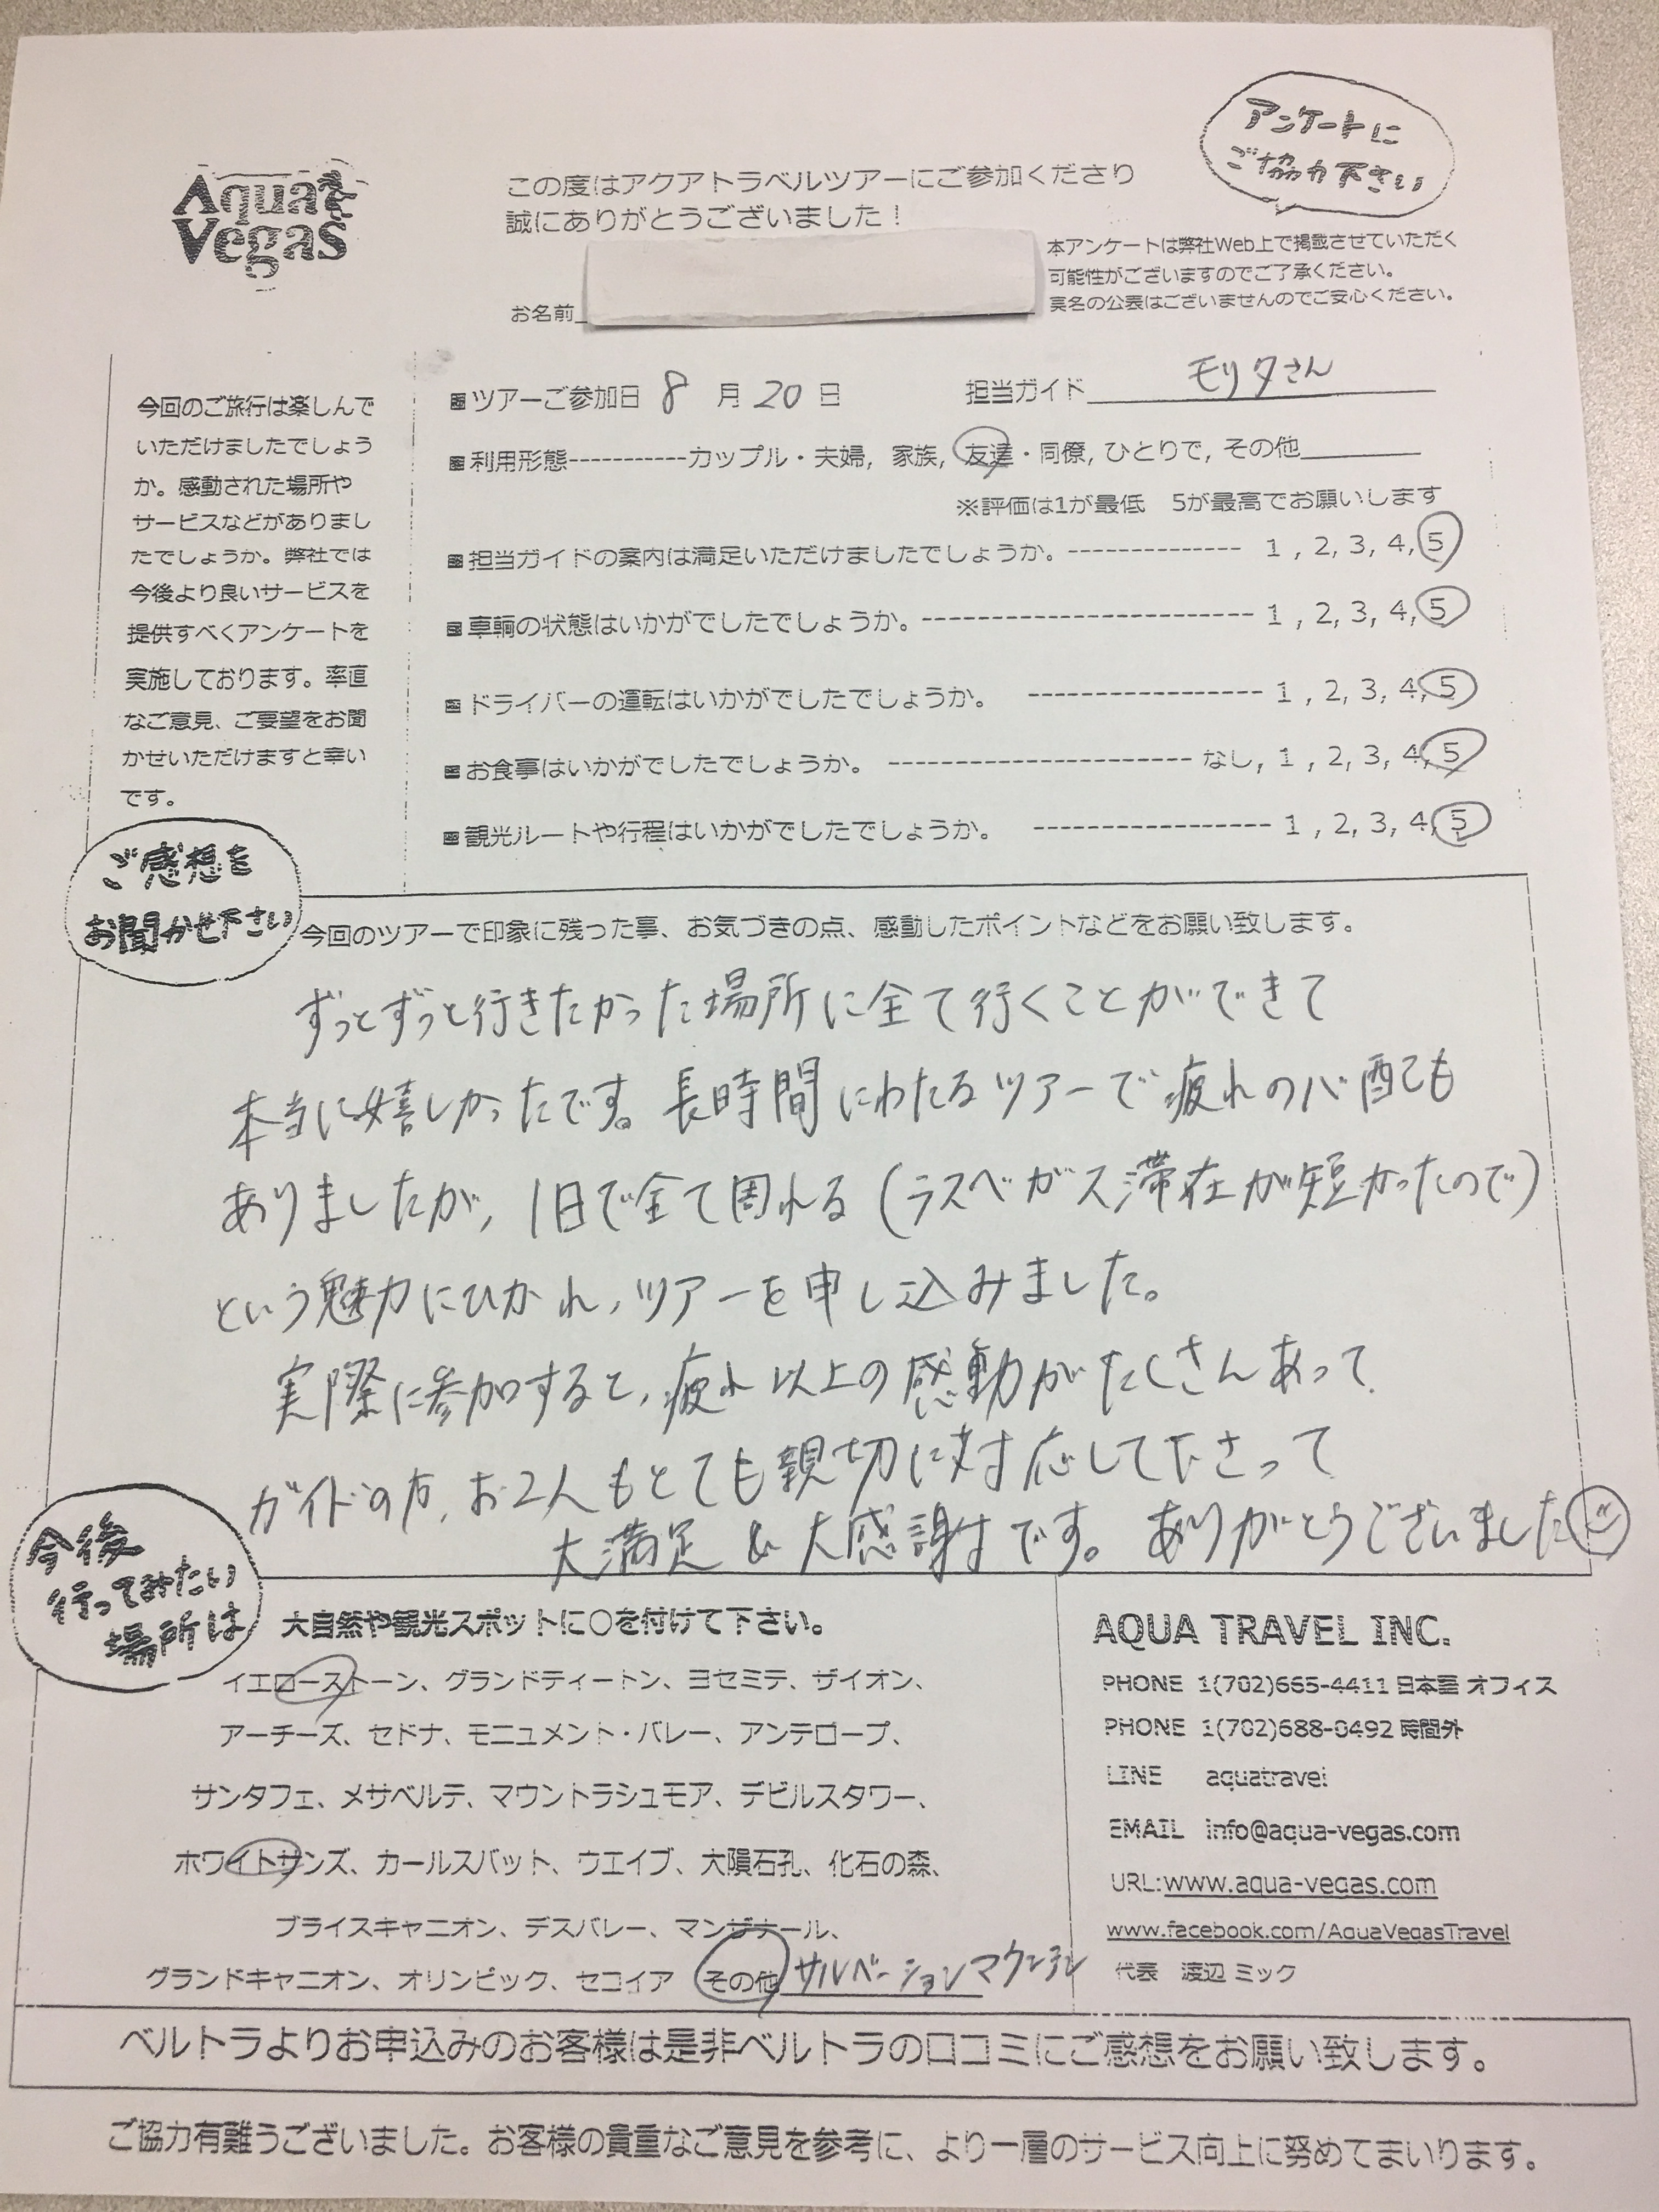 Aqua
Vegas
この度はアクアトラベルツアーにご参加くださり
誠にありがとうございました！
アンケートに
ご協力下さい
本アンケートは弊社Web上で掲載させていただく
可能性がございますのでご了承ください。
実名の公表はございませんのでご安心ください。
お名前
今回のご旅行は楽しんで
いただけましたでしょう
か。感動された場所や
サービスなどがありまし
たでしょうか。弊社では
今後より良いサービスを
提供すべくアンケートを
実施しております。率直
なご意見、ご要望をお聞
かせいただけますと幸い
です。
■ツアーご参加日 8 月 20 日 担当ガイド モリタさん
■利用形態-----------カップル・夫婦, 家族, 友達・同僚, ひとりで, その他
※評価は1が最低 5が最高でお願いします
■担当ガイドの案内は満足いただけましたでしょうか。------------- 1 , 2, 3, 4, 5
■車輌の状態はいかがでしたでしょうか。------------------------- 1 , 2, 3, 4, 5
■ドライバーの運転はいかがでしたでしょうか。 ------------------ 1 , 2, 3, 4, 5
■お食事はいかがでしたでしょうか。 ----------------------- なし, 1 , 2, 3, 4, 5
■観光ルートや行程はいかがでしたでしょうか。 ------------------ 1 , 2, 3, 4, 5
ご感想を
お聞かせ下さい
今回のツアーで印象に残った事、お気づきの点、感動したポイントなどをお願い致します。
ずっとずっと行きたかった場所に全て行くことができて
本当に嬉しかったです。長時間にわたるツアーで疲れの心配も
ありましたが、1日で全て周れる(ラスベガス滞在が短かったので)
という魅力にひかれ、ツアーを申し込みました。
実際に参加すると、疲れ以上の感動がたくさんあって
ガイドの方、お2人もとても親切に対応して下さって
大満足 & 大感謝です。ありがとうございました
今後
行ってみたい
場所は
大自然や観光スポットに○を付けて下さい。
イエローストーン、グランドティートン、ヨセミテ、ザイオン、
アーチーズ、セドナ、モニュメント・バレー、アンテロープ、
サンタフェ、メサベルテ、マウントラシュモア、デビルスタワー、
ホワイトサンズ、カールスバット、ウエイブ、大隕石孔、化石の森、
ブライスキャニオン、デスバレー、マンザナール、
グランドキャニオン、オリンピック、セコイア その他 サルベーションマウンテン
AQUA TRAVEL INC.
PHONE 1(702)665-4411 日本語 オフィス
PHONE 1(702)688-0492 時間外
LINE aquatravel
EMAIL info@aqua-vegas.com
URL:www.aqua-vegas.com
www.facebook.com/AquaVegasTravel
代表 渡辺 ミック
ベルトラよりお申込みのお客様は是非ベルトラの口コミにご感想をお願い致します。
ご協力有難うございました。お客様の貴重なご意見を参考に、より一層のサービス向上に努めてまいります。